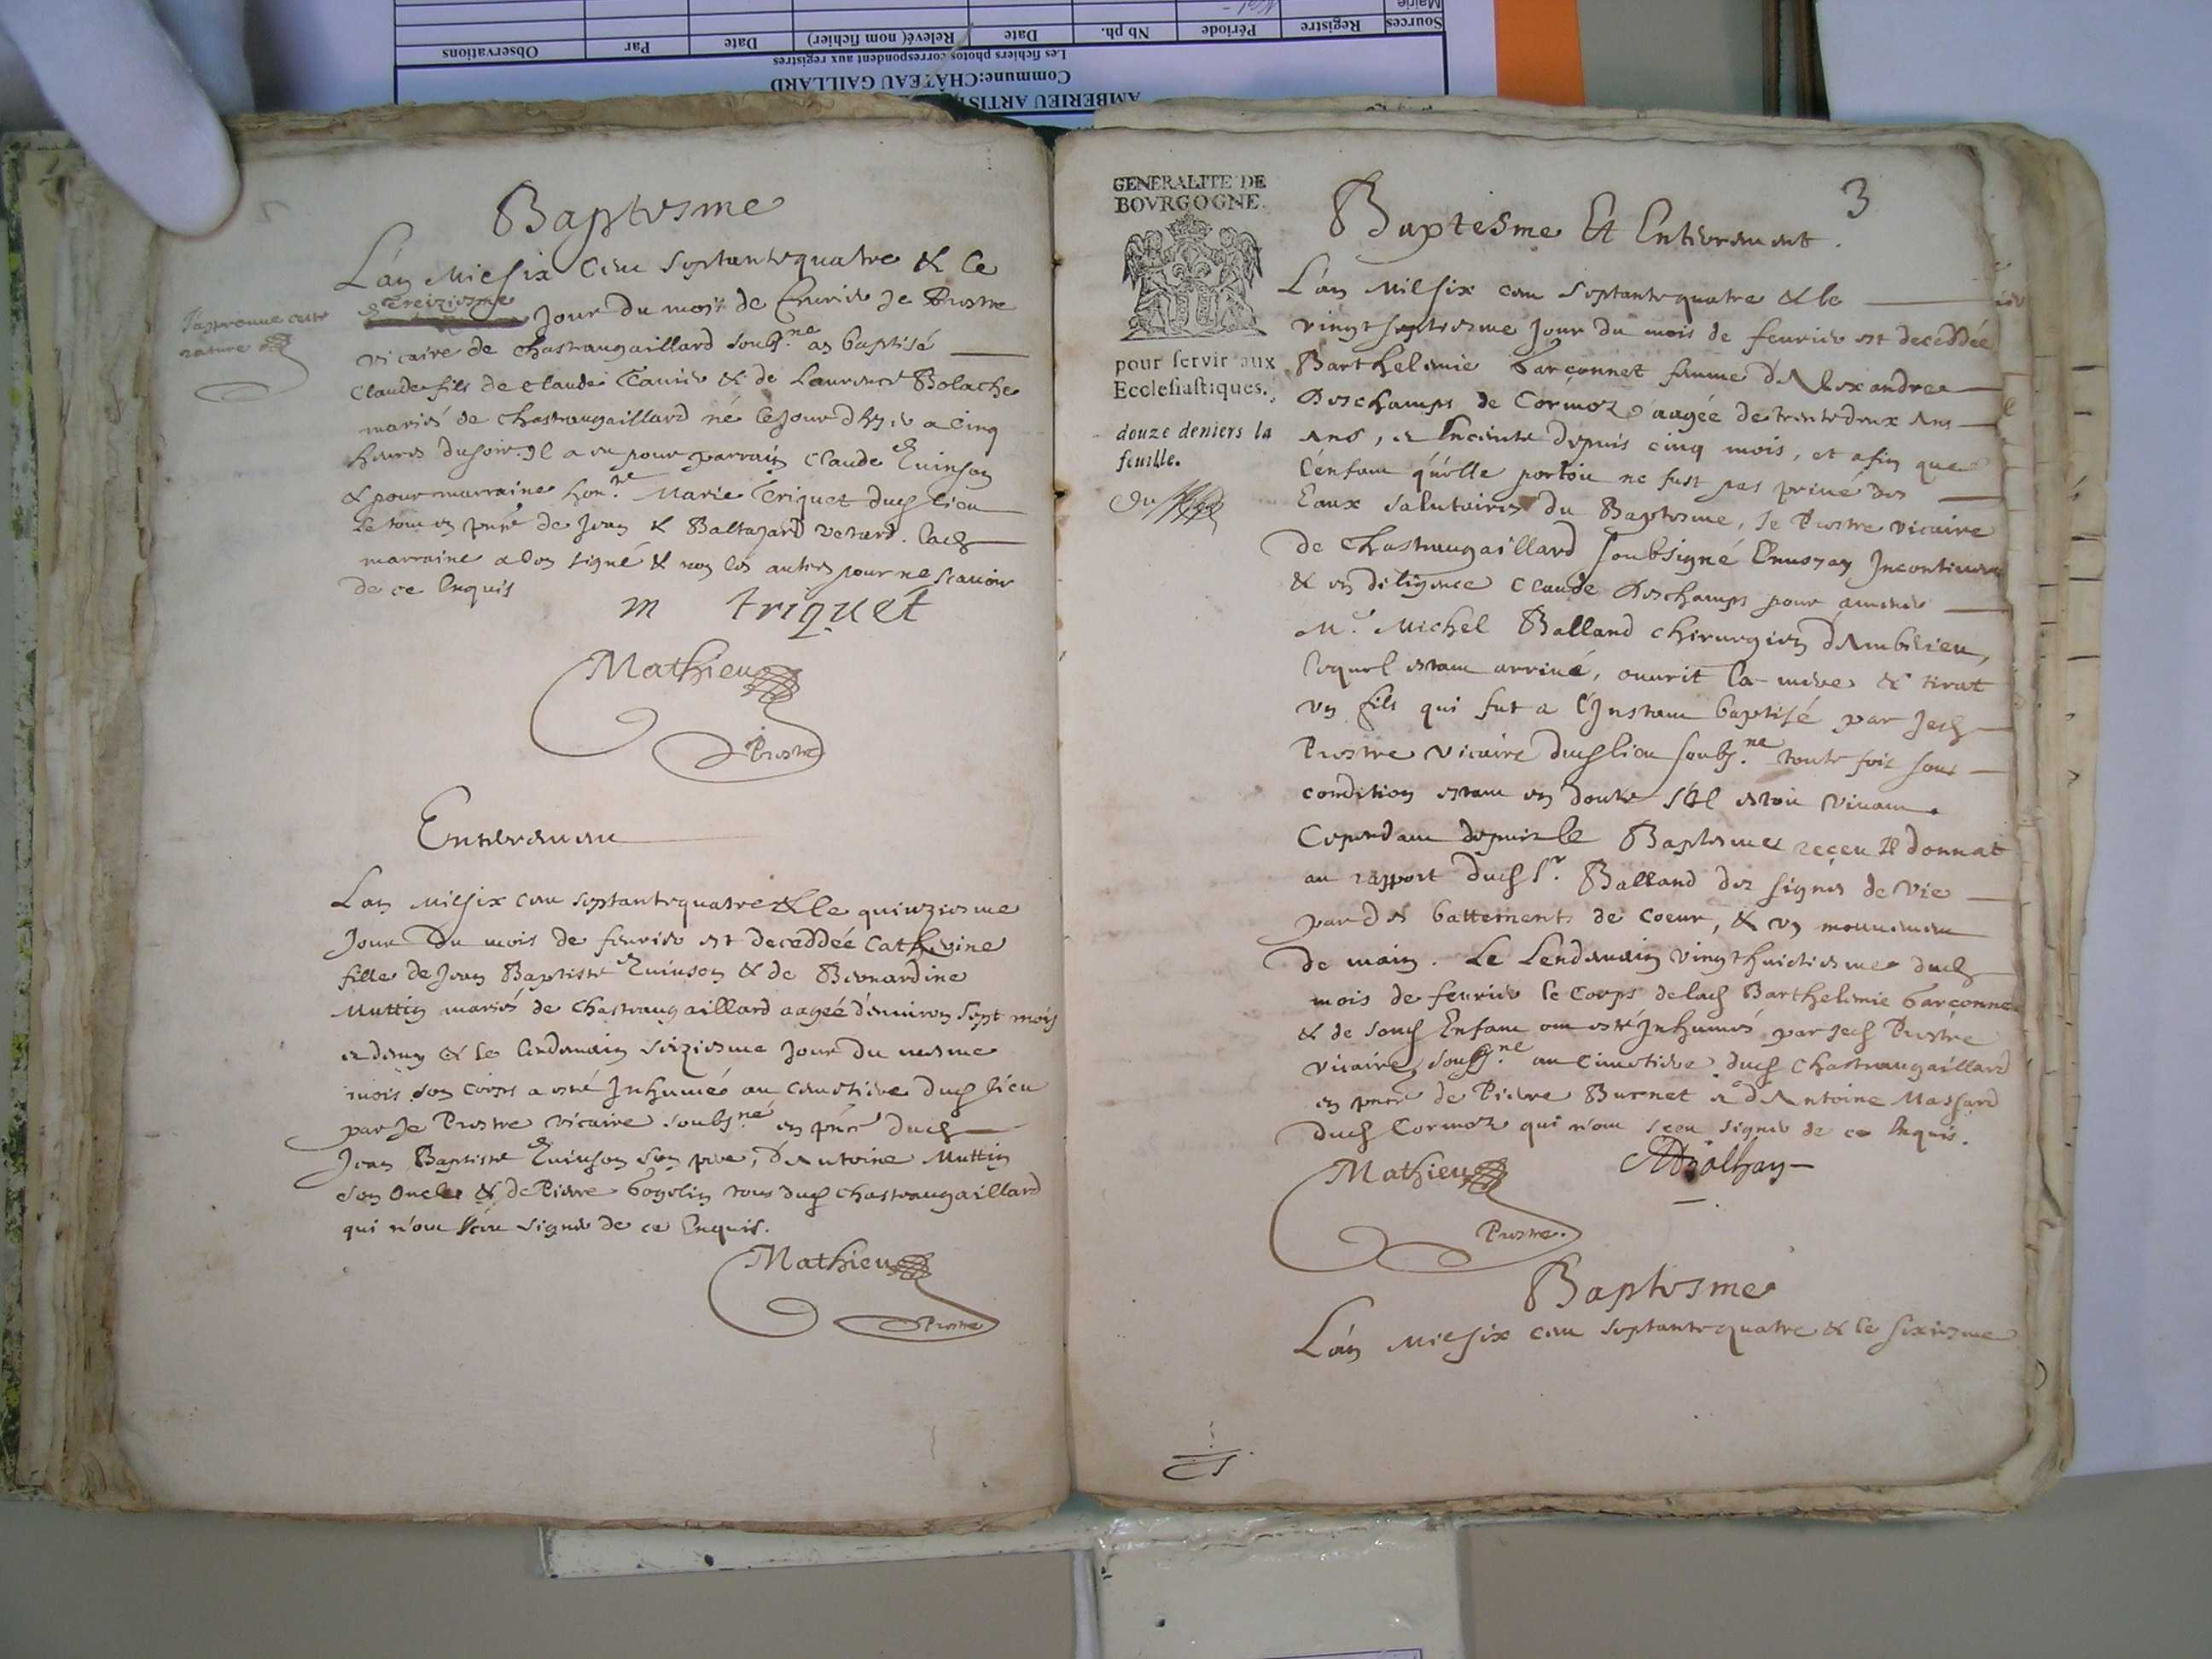 AMBERIEU ARTIS
Commune:CHÂTEAU GAILLARD
Les fichiers photos correspondent aux registres
Sources Registre Période Nb ph. Date Relevé(nom fichier) Date Par Observations
Mairie
Baptesme
L'an Mil six cens septante quatre & le
treiziesme Jour du mois de feurier Je Prestre
vicaire de chasteaugaillard soubs.né ay baptisé
Claude fils de Claude Tauier & de Laurence Bolache
mariés de chasteaugaillard né le Jour d'hyer a cinq
heures du soir. Il a eu pour parrain Claude Euinson
& pour marraine hon.ble Marie Triquet dud lieu
Le tout en pnce de Jean & Baltazard Venard. lad
marraine a les signé & non les autres pour ne scauoir
de ce Enquis
J'appreuue cette
rature
m triquet
Mathieu
Prestre
Enterement
L'an Mil six cens septante quatre & le quinziesme
Jour Du mois de feurier est deceddée Catherine
fille de Jean Baptiste Euinson & de Bernardine
Muttin mariés de Chasteaugaillard aagée d'enuiron sept mois
et demy & le lendemain seiziesme Jour du mesme
mois son corps a esté Inhumé au cemetiere dud lieu
par Je Prestre vicaire soubs.né en pnce dud
Jean Baptiste Euinson son pere, d'Antoine Muttin
son Oncle & de Pierre bogelin tous dud Chasteaugaillard
qui n'ont sceu signer de ce Enquis.
Mathieu
Prestre
GENERALITE DE
BOVRGOGNE.
pour servir aux
Ecclesiastiques.
douze deniers la
feuille.
3
Baptesme Et Enterement.
L'an Mil six cens septante quatre & le
vingt septiesme Jour du mois de feurier est deceddée
Barthelemie barçonnet femme d'Alexandre
Deschamps de Cormoz aagée de trente deux Ans
Ans, et Enceinte depuis cinq mois, et afin que
l'enfant qu'elle portoit ne fust pas priué des
Eaux salutaires du Baptesme, Je Prestre vicaire
de Chasteaugaillard soubsigné Enuoyay Incontinent
& en diligence Claude Deschamps pour amener
M.e Michel Balland chirurgien d'Amberieu,
lequel estant arriué, ouurit la mere & tirat
vn fils qui fut a l'Instant baptisé par Jed
Prestre vicaire dud lieu soubs.né toute fois sous
condition estant en doute s'Il estoit viuant.
Cependant depuis le Baptesme reçeu Il donnat
au rapport dud Sr. Balland des signes de vie
par des battements de coeur, & vn mouuement
de main. Le Lendemain vingt huictiesme dud
mois de feurier le Corps de lad Barthelemie barçonnet
& de sond Enfant ont esté Inhumés par Jed Prestre
vicaire soubs.né au Cimetiere dud Chasteaugaillard
en pnce de Pierre Burnet et d'Antoine Massard
dud Cormoz qui n'ont sceu signer de ce Enquis.
Mathieu
Prestre.
Baptesme
L'an Mil six cens septante quatre & le sixiesme